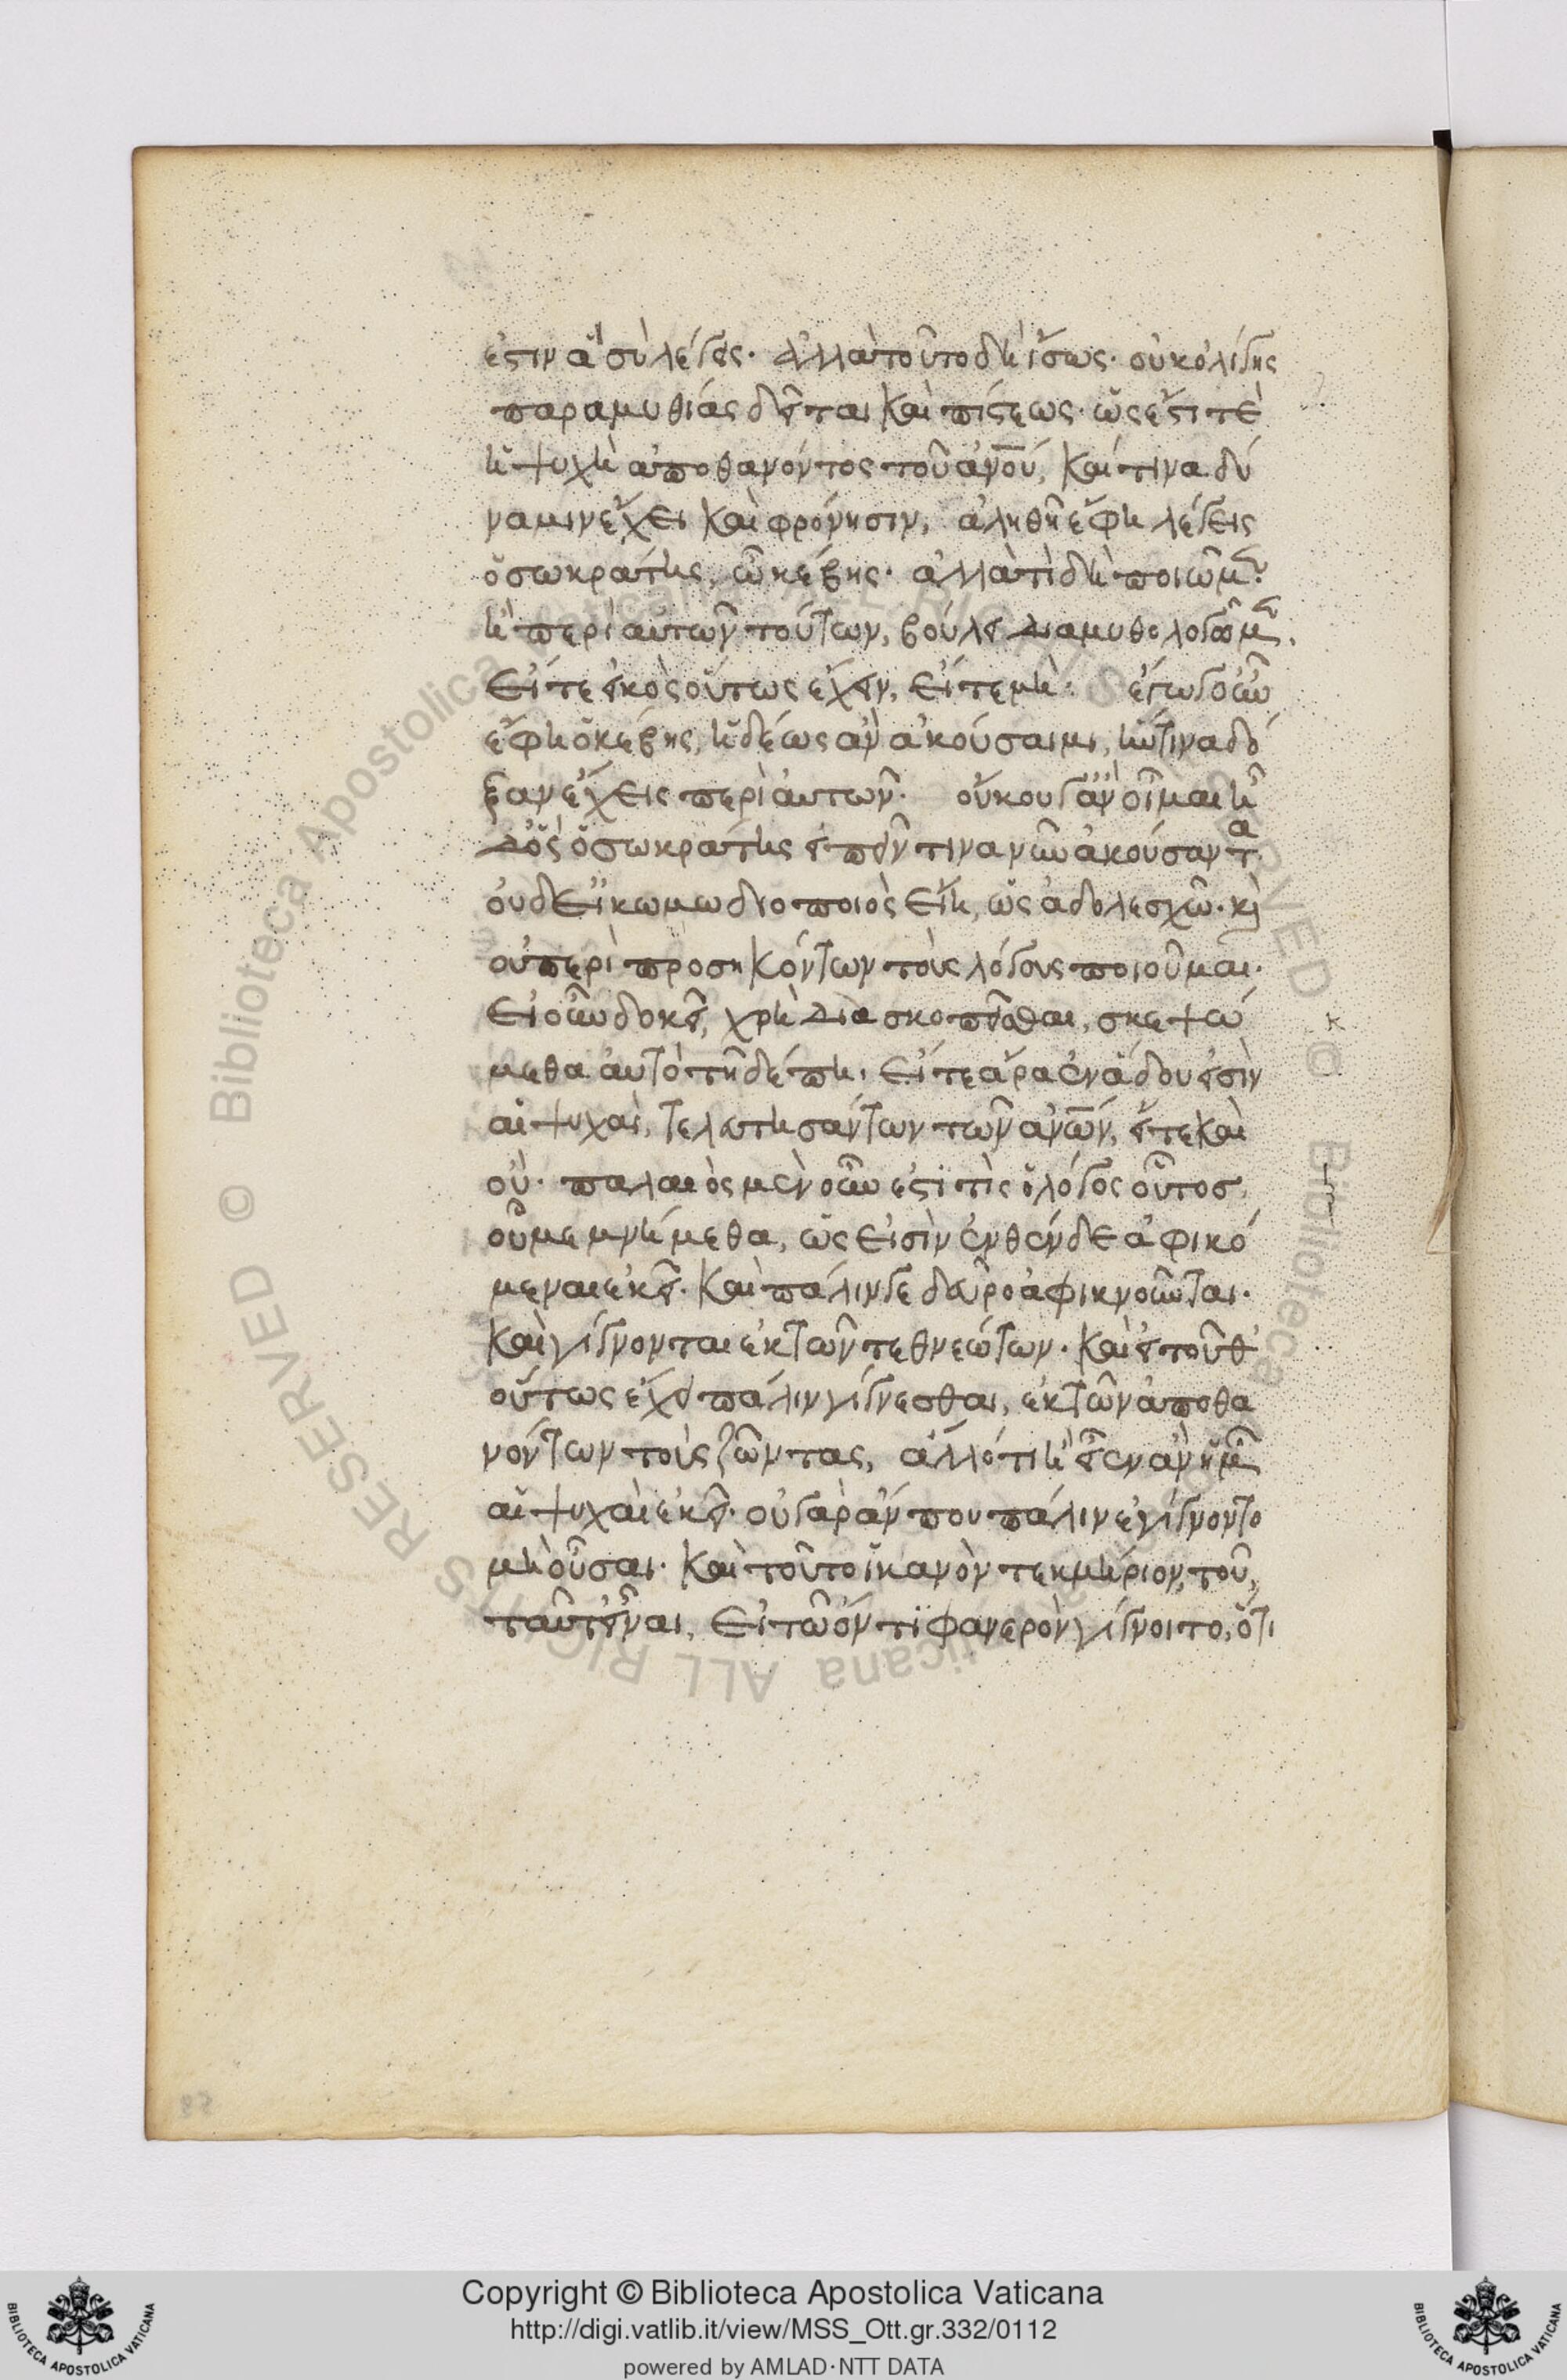 ἐστιν ἃ σὺ λέγεις· ἀλλὰ τοῦτο δὴ ἴσως· οὐκ ὀλίγης
παραμυθίας δεῖται καὶ πίστεως· ὡς ἔστι τὲ
ἡ ψυχὴ ἀποθανόντος τοῦ ἀνου, καί τινα δύ
ναμιν ἔχει καὶ φρόνησιν, ἀληθῆ ἔφη λέγεις
ὁ σωκράτης, ὦ κέβης· ἀλλὰ τὶ δὴ ποιῶμεν·
ἢ περὶ αὐτῶν τούτων, βούλει διαμυθολογῶμεν,
εἴτε εἰκὸς οὕτως ἔχειν, εἴτε μή· ἐγωγοῦν
ἔφη ὁ κέβης, ἡδέως ἂν ἀκούσαιμι, ἥντινα δό
ξαν ἔχεις περὶ αὐτῶν· οὔκουν γ' ἂν οἶμαι ἦ
δ' ὃς ὁ σωκράτης εἰπεῖν τινα νῦν ἀκούσαντα
οὐδ' εἰ κωμωδιοποιὸς εἴη, ὡς ἀδολεσχῶ· κὶ
οὐ περὶ προσηκόντων τοὺς λόγους ποιοῦμαι·
εἰ οὖν δοκεῖ, χρὴ διασκοπεῖσθαι, σκεψώ
μεθα αὐτὸ τῆδέ πη, εἴτε ἄρα ἐν ἅδου εἰσὶν
αἱ ψυχαὶ, τελευτησάντων τῶν ἀνων, εἴτε καὶ
οὐ· παλαιὸς μὲν οὖν ἐστὶ τὶς ὁ λόγος οὗτος,
οὗ μεμνήμεθα, ὡς εἰσὶν ἐνθένδε ἀφικό
μεναι ἐκεῖ· καὶ πάλιν γε δεῦρο ἀφικνοῦνται·
καὶ γίγνονται ἐκ τῶν τεθνεώτων· καὶ εἰ τοῦθ'
οὕτως ἔχει πάλιν γίγνεσθαι, ἐκ τῶν ἀποθα
νόντων τοὺς ζῶντας, ἄλλό τι ἢ εἶεν ἂν ἡμῶν
αἱ ψυχαὶ ἐκεῖ· οὐ γὰρ ἄν που πάλιν ἐγίγνοντο
μὴ οὖσαι· καὶ τοῦτο ἱκανὸν τεκμήριον, τοῦ,
ταῦτ' εἶναι, εἰ τῶ ὄντι φανερὸν γίγνοιτο, ὅτι
Copyright © Biblioteca Apostolica Vaticana
http://digi.vatlib.it/view/MSS_Ott.gr.332/0112
powered by AMLAD·NTT DATA